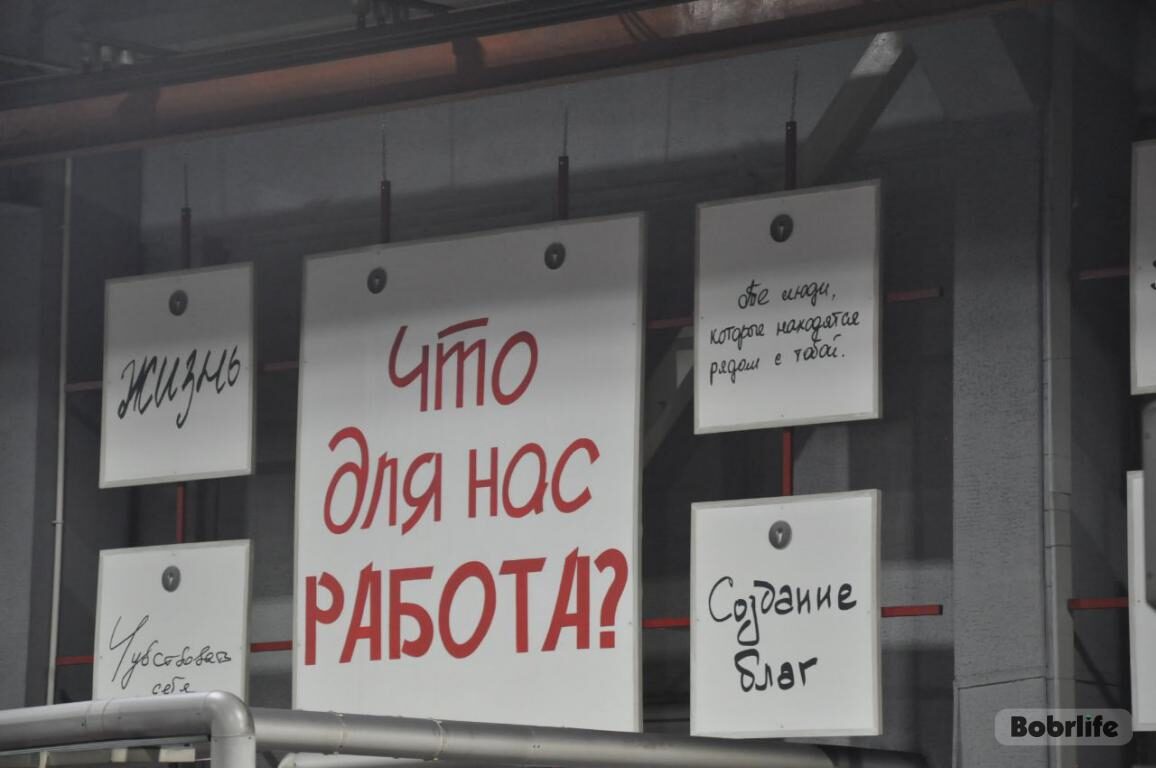 Жизнь
Чувствовать
себя
Что
для нас
РАБОТА?
Те люди,
которые находятся
рядом с тобой.
Создание
благ
Bobrlife